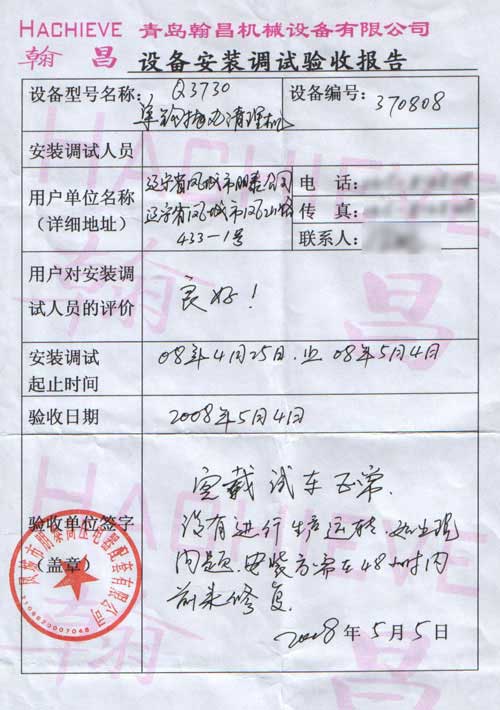 HACHIEVE 青岛翰昌机械设备有限公司
翰昌 设备安装调试验收报告
设备型号名称: Q3730 设备编号: 370808
单钩抛丸清理机
安装调试人员
用户单位名称 辽宁省凤城市朋泰公司 电 话:
(详细地址) 辽宁省凤城市凤山路 传 真:
433-1号 联系人:
用户对安装调
试人员的评价 良好!
安装调试 08年4月25日.止08年5月4日
起止时间
验收日期 2008年5月4日
空载试车正常.
验收单位签字 没有进行生产运转,如出现
(盖章) 问题.安装方需在48小时内
前来修复.
2008年5月5日